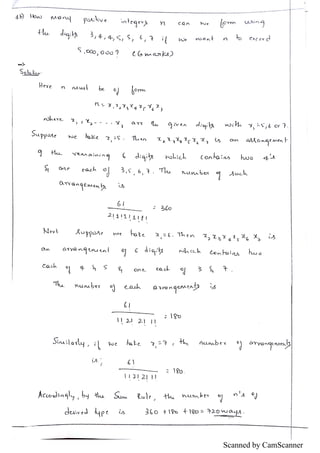 18) How many positive integers n can we form using
the digits 3,4,4,5,5,6,7 if we want n to exceed
5,000,000? (6 marks)
→
Solution
Here n must be of form
n = x₁x₂x₃x₄x₅x₆x₇
where x₁, x₂, ..... x₇ are the given digits with x₁=5,6 or 7.
Suppose we take x₁=5. Then x₂x₃x₄x₅x₆x₇ is an arrangement
of the remaining 6 digits which contains two 4's
& one each of 3,5,6,7. The number of such
arrangements is
6!
2!1!1!1!1! = 360
Next suppose we take x₁=6. Then x₂x₃x₄x₅x₆x₇ is
an arrangement of 6 digits which contains two
each of 4 & 5 & one each of 3 & 7.
The number of such arrangements is
6!
1! 2! 2! 1! = 180
Similarly, if we take x₁=7, the number of arrangements
is; 6!
1! 2! 2! 1! = 180.
Accordingly, by the Sum Rule, the number of n's of
desired type is 360 + 180 + 180 = 720 ways.
Scanned by CamScanner